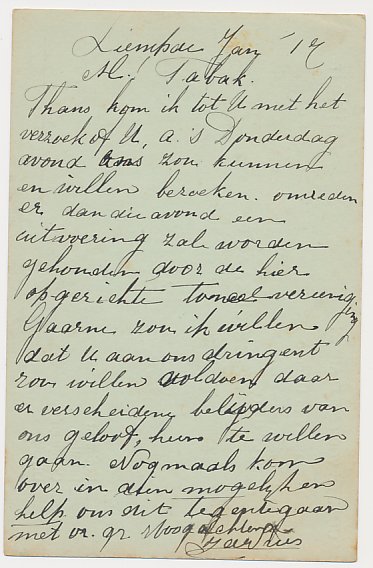 Liempde Jan '17
M. Tabak.
Thans kom ik tot U met het
verzoek of U, a.s Donderdag
avond ons zou kunnen
en willen bezoeken. omreden
er dan die avond een
uitvoering zal worden
gehouden door de hier
opgerichte toneel vereeniging
Gaarne zou ik willen
dat U aan ons dringent
zou willen voldoen, daar
er verscheidene belijders van
ons geloof, heen te willen
gaan. Nogmaals kom
over in dien mogelijk en
help ons dit tegentegaan
met vr. gr. Hoogachtend